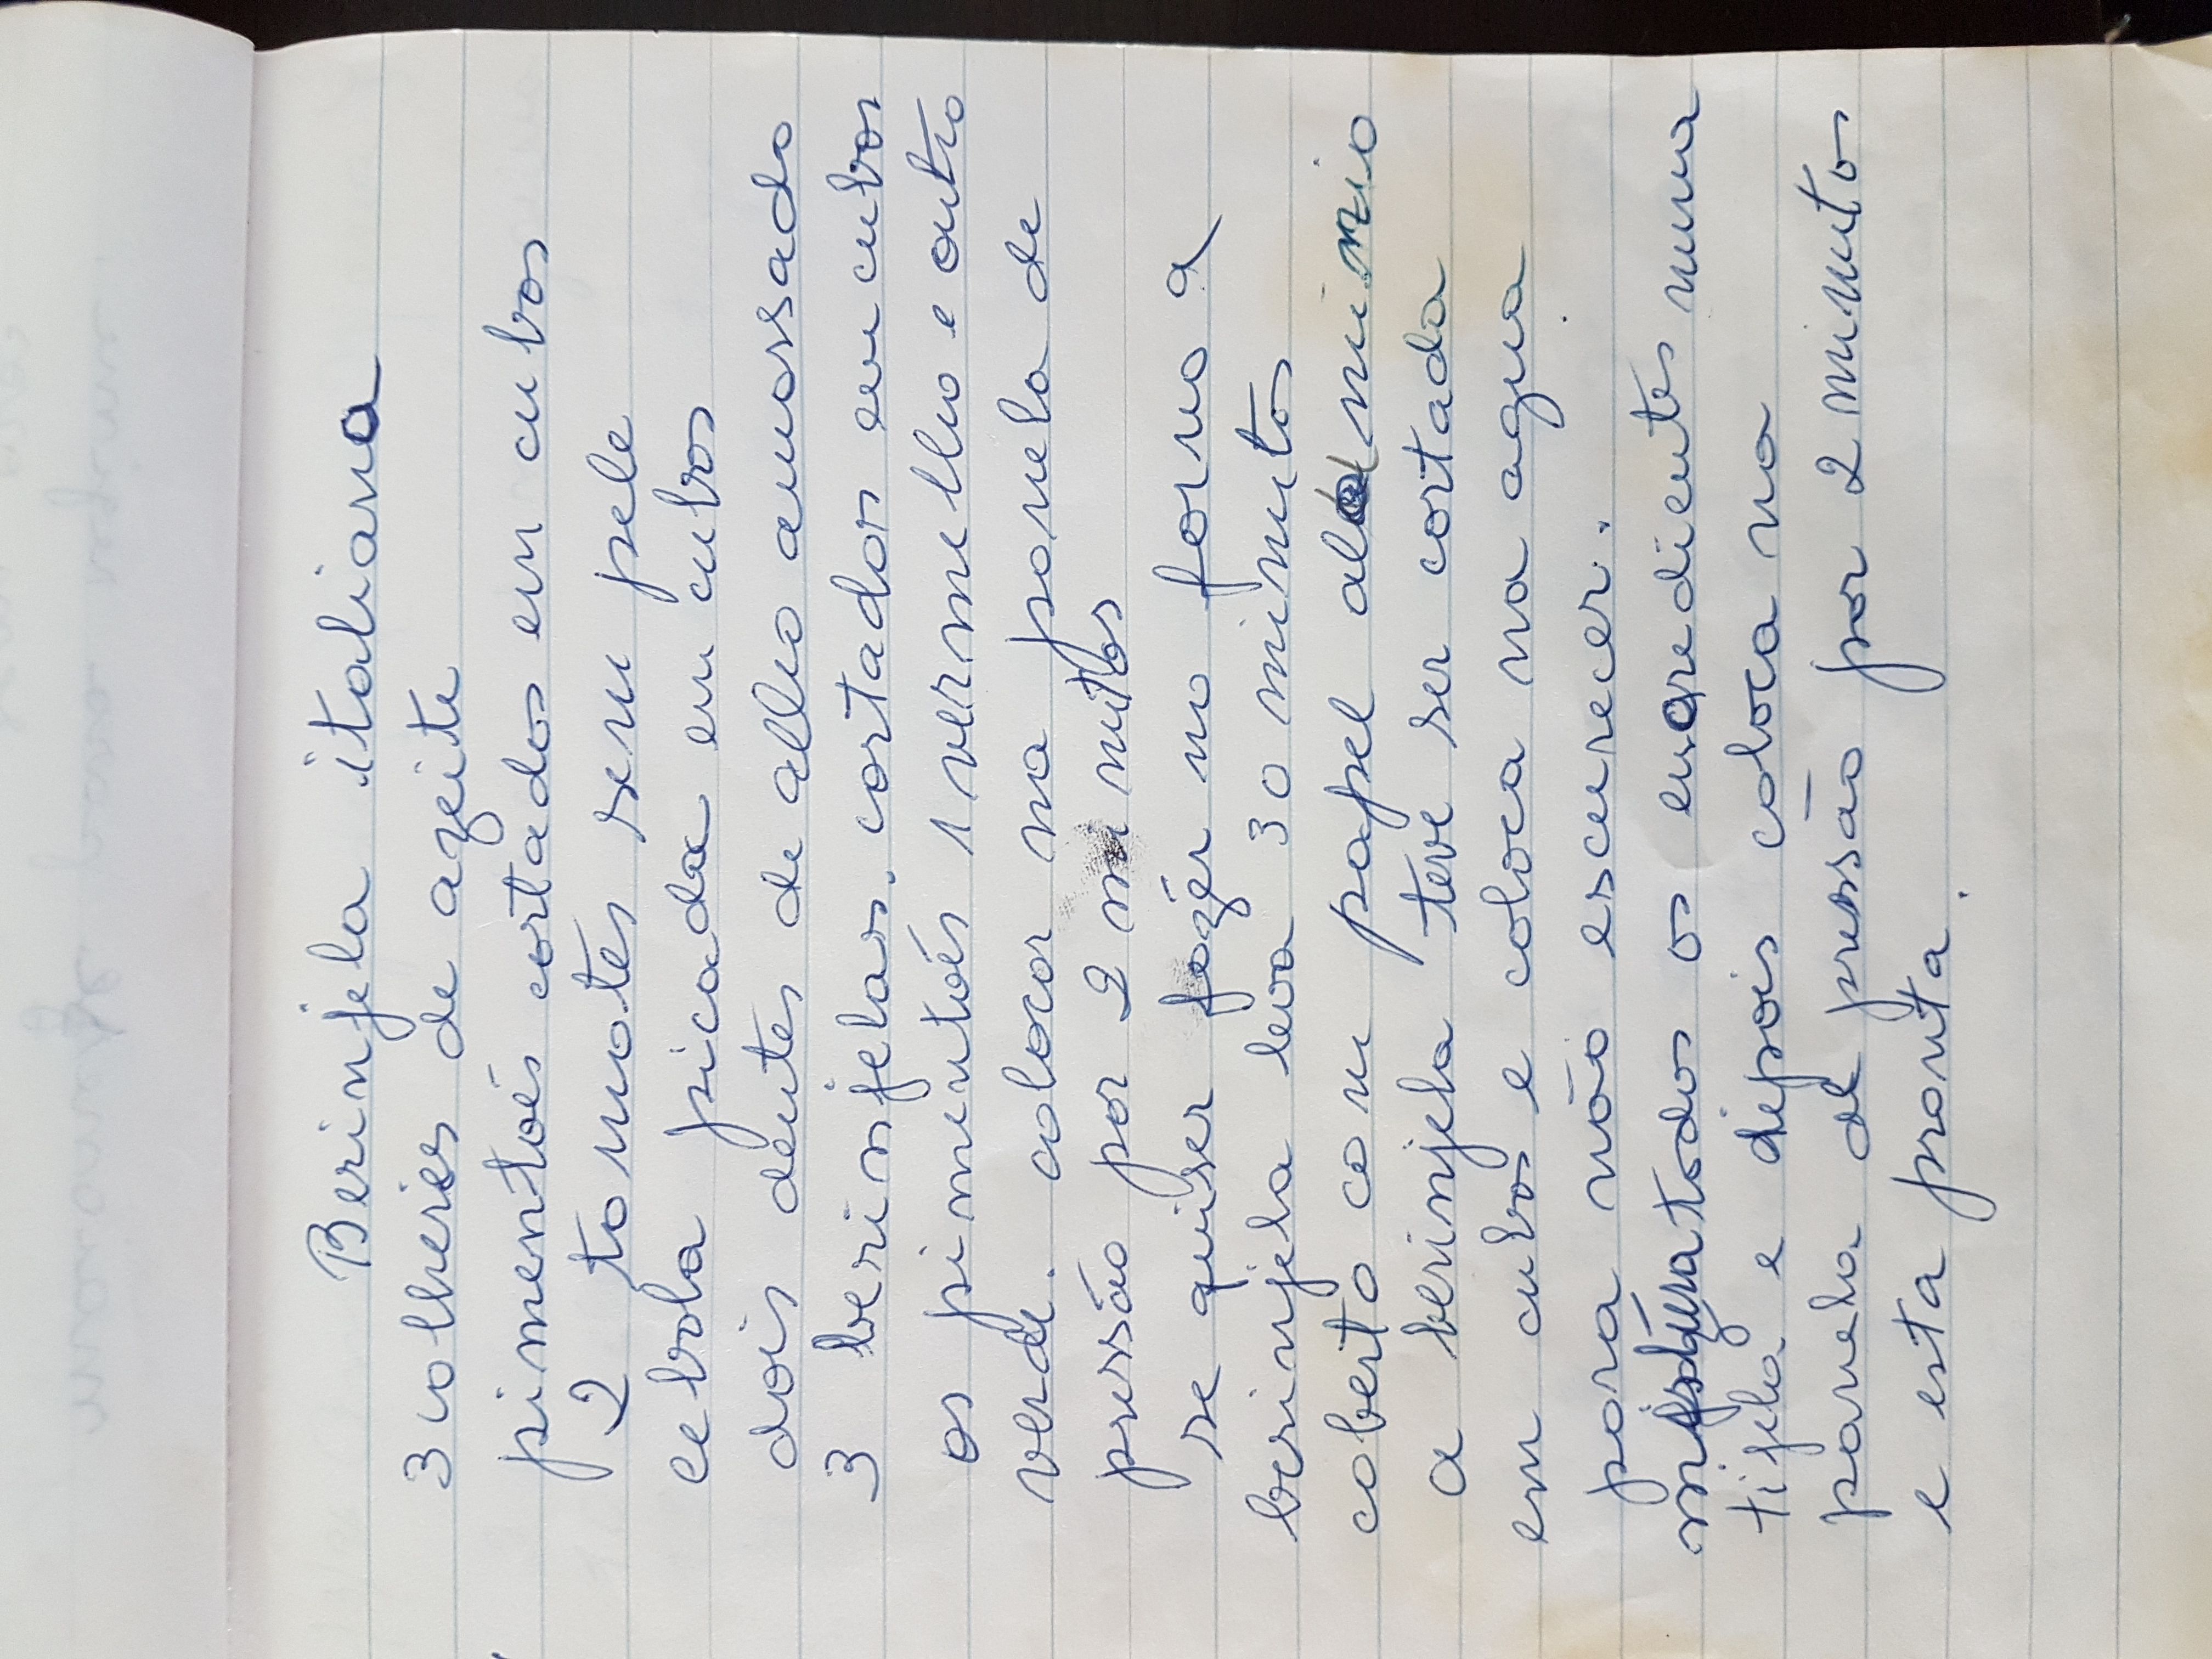 Berinjela italiana
3 colheres de azeite
pimentoẽs cortados em cubos
2 tomates sem pele
cebola picada em cubos
dois dentes de alho amassado
3 berinjelas. cortados em cubos
os pimentoẽs 1 vermelho e outro
verde. colocar na panela de
pressão por 2 minutos
se quiser fazér no forno a
berinjela leva 30 minutos
coberto com papel aluminio
a berinjela teve ser cortada
em cubos e coloca na agua
para não escurecer.
mistura todos os engredientes numa
tijela e depois coloca na
panela de pressão por 2 minutos
e esta pronta.